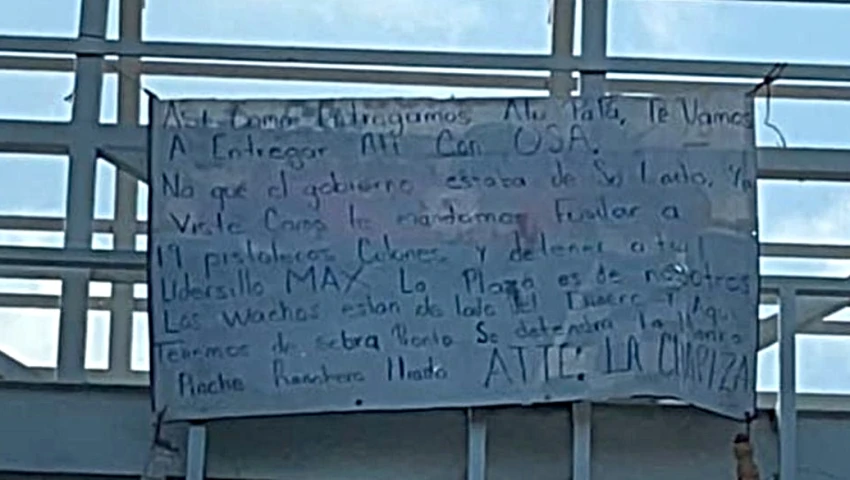 Asi Como Entregamos A tu PaPá, Te Vamos
A Entregar A ti Con USA.
No que el gobierno estaba de Su Lado, Ya
Viste Como le mandamos Fusilar a
19 pistoleros Culones y detener a tu
Lidersillo MAX La Plaza es de nosotros
Los Wachos estan de lado del Dinero Y Aqui
Tenemos de sobra Pronto Se detendra la
Pinche Ranchero ATTE: LA CHAPIZA